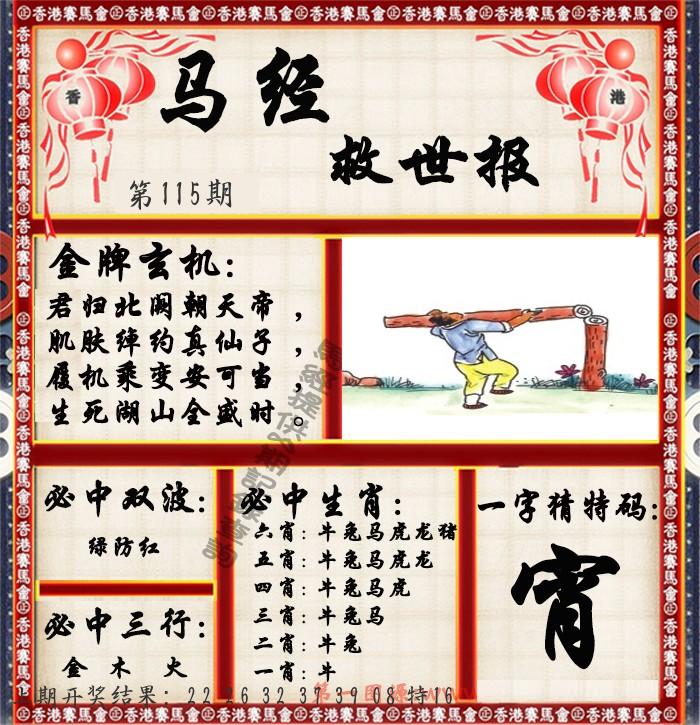 香港賽馬會
香
港
马经
救世报
第115期
金牌玄机：
君归北阙朝天帝，
肌肤绰约真仙子，
履机乘变安可当，
生死湖山全盛时。
必中双波：
绿防红
必中三行：
金 木 火
必中生肖：
六肖：牛兔马虎龙猪
五肖：牛兔马虎龙
四肖：牛兔马虎
三肖：牛兔马
二肖：牛兔
一肖：牛
一字猜特码：
宵
期开奖结果：22 26 32 37 39 08特16
第一图源 www